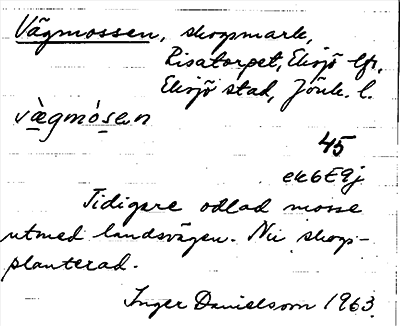 Vägmossen, skogsmark,
Risatorpet, Eksjö lfs,
Eksjö stad, Jönk. l.
vä̀gmósen
45
ek6E9j
Tidigare odlad mosse
utmed landsvägen. Nu skogs-
planterad.
Inger Danielsson 1963